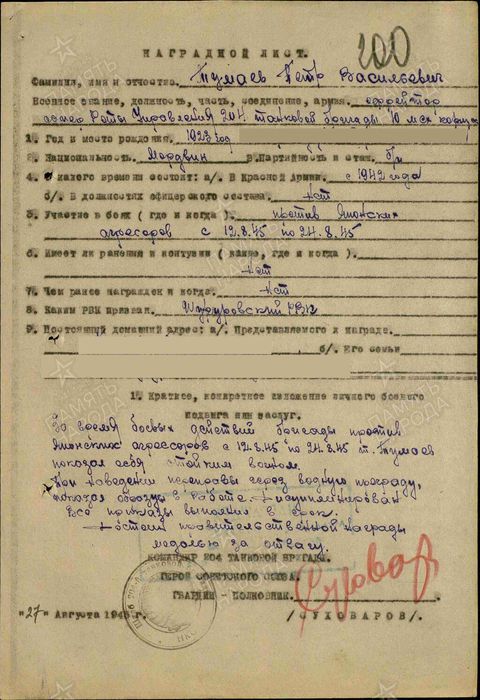 200
НАГРАДНОЙ ЛИСТ.
Фамилия, имя и отчество. Тумаев Петр Васильевич
Военное звание, должность, часть, соединение, армия. ефрейтор
Роты Управления 204 танковой бригады 10 мех корпуса
1. Год и место рождения. 1923 год
2. Национальность. Мордвин 3. Партийность и стаж. б/п
4. С какого времени состоит: а/. В Красной Армии. с 1942 года
б/. В должностях офицерского состава. Нет
5. Участие в боях ( где и когда ). против Японских
агрессоров с 12.8.45 по 24.8.45
6. Имеет ли ранения и контузии ( какие, где и когда ).
Нет
7. Чем ранее награжден и когда. Нет
8. Каким РВК призван. РВК
9. Постоянный домашний адрес: а/. Представляемого к награде.
б/. Его семьи
1. Краткое, конкретное изложение личного боевого
подвига или заслуг.
За время боевых действий бригады против
Японских агрессоров с 12.8.45 по 24.8.45 т. Тумаев
показал себя стойким воином.
При наведении переправы через водную преграду,
показал образцы в работе. Дисциплинирован
Все приказы выполнял в срок.
Достоин правительственной награды
медалью за отвагу.
КОМАНДИР 204 ТАНКОВОЙ БРИГАДЫ.
ГЕРОЙ СОВЕТСКОГО СОЮЗА.
ГВАРДИИ - ПОЛКОВНИК.
"27" Августа 1945 г. /СУХОВАРОВ/.
ПАМЯТЬ НАРОДА